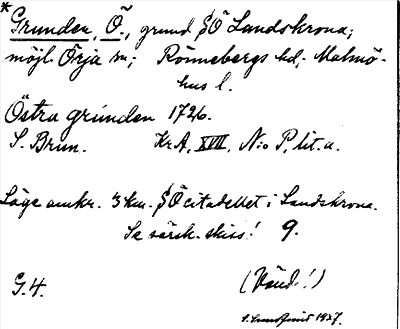 *
Grunden, Ö., grund SÖ Landskrona;
möjl. Örja sn; Rönnebergs hd, Malmö-
hus l.
Östra grunden 1726.
S. Brun. KrA, XVII, N:o P, lit. a.
Läge omkr. 3 km. SÖ citadellet i Landskrona.
Se särsk. skiss! 9.
G.4. (Vänd!)
1927.